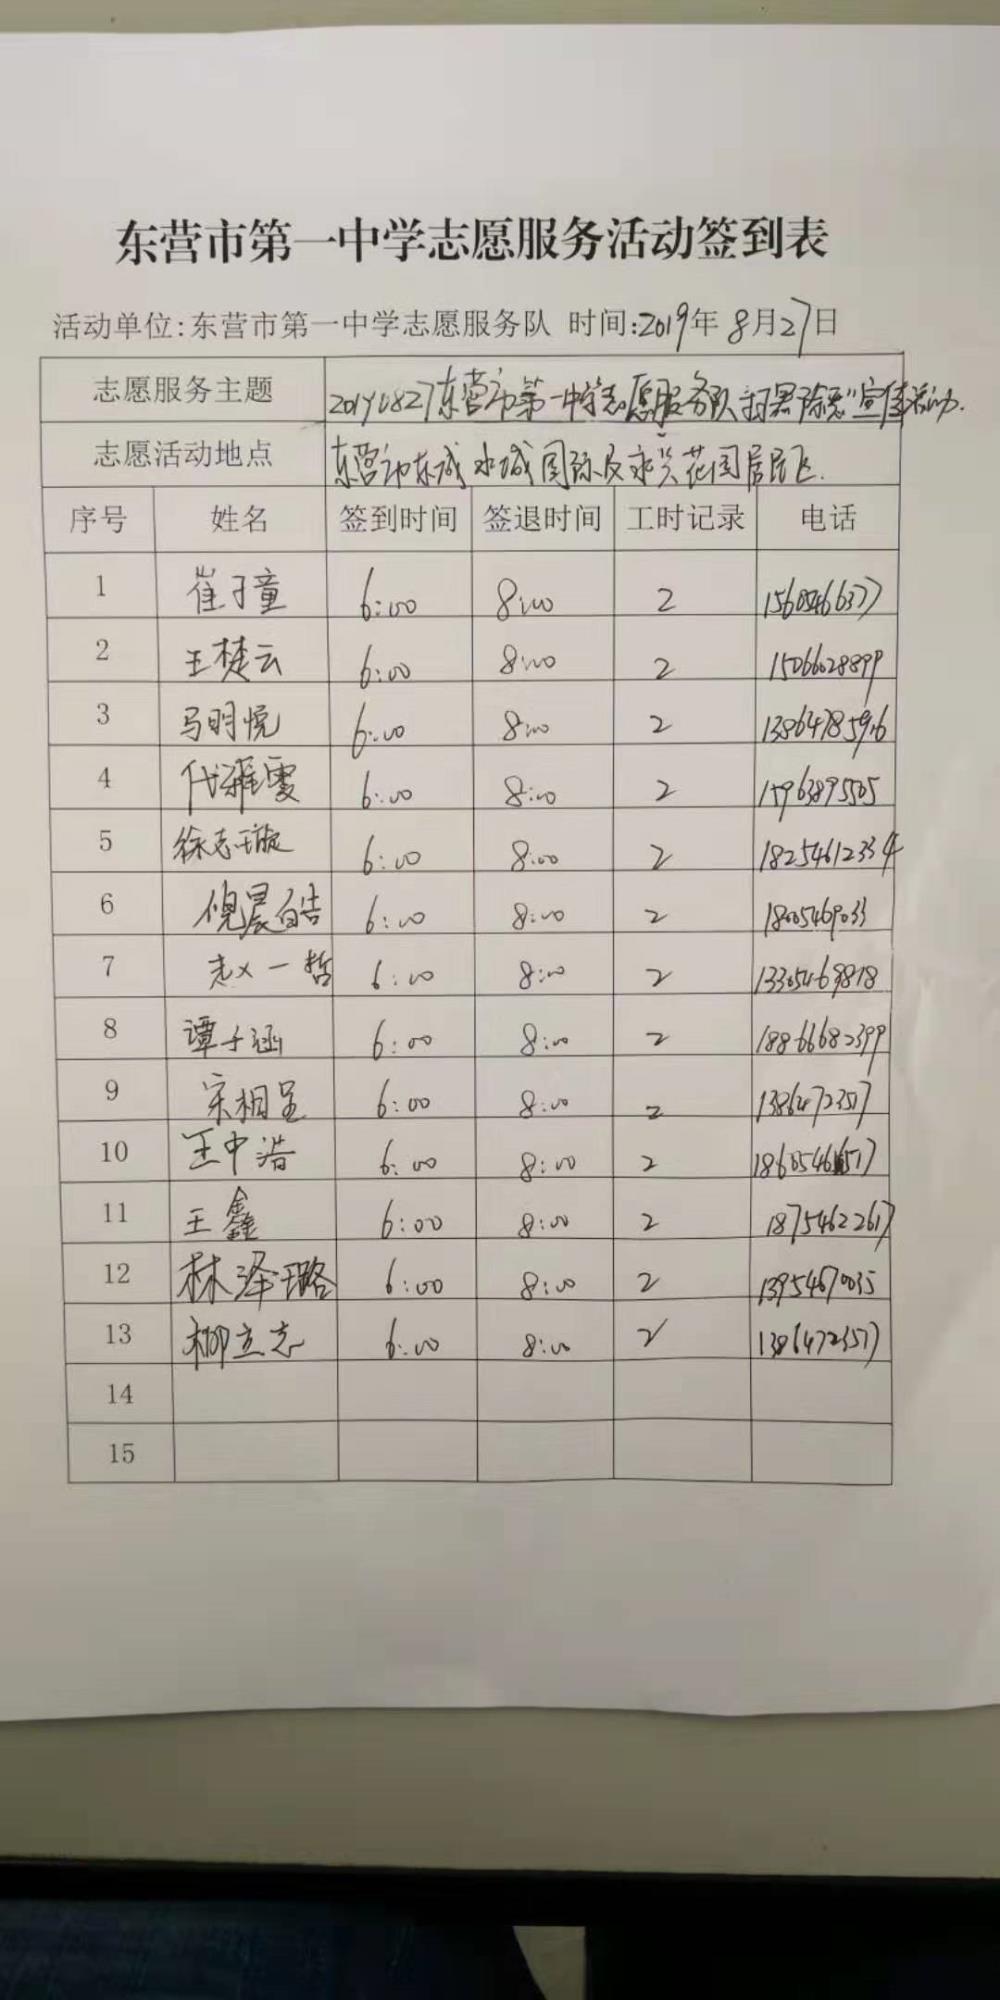 东营市第一中学志愿服务活动签到表
活动单位:东营市第一中学志愿服务队 时间:2019年8月27日
志愿服务主题 20190827东营市第一中学志愿服务队"扫黑除恶"宣传活动.
志愿活动地点 东营市东城水城国际及永兴花园居民区.
序号 姓名 签到时间 签退时间 工时记录 电话
1 崔子童 6:00 8:00 2 15605466377
2 王楚云 6:00 8:00 2 15066028899
3 马明悦 6:00 8:00 2 13864785916
4 代雅雯 6:00 8:00 2 15963895505
5 徐志璇 6:00 8:00 2 18254612334
6 倪晨皓 6:00 8:00 2 18005469033
7 赵一哲 6:00 8:00 2 13305469818
8 谭子涵 6:00 8:00 2 18866682399
9 宋相呈 6:00 8:00 2 13864723517
10 王中浩 6:00 8:00 2
11 王鑫 6:00 8:00 2 18754622617
12 林泽璐 6:00 8:00 2 13954670035
13 柳立志 6:00 8:00 2 13864723517
14
15